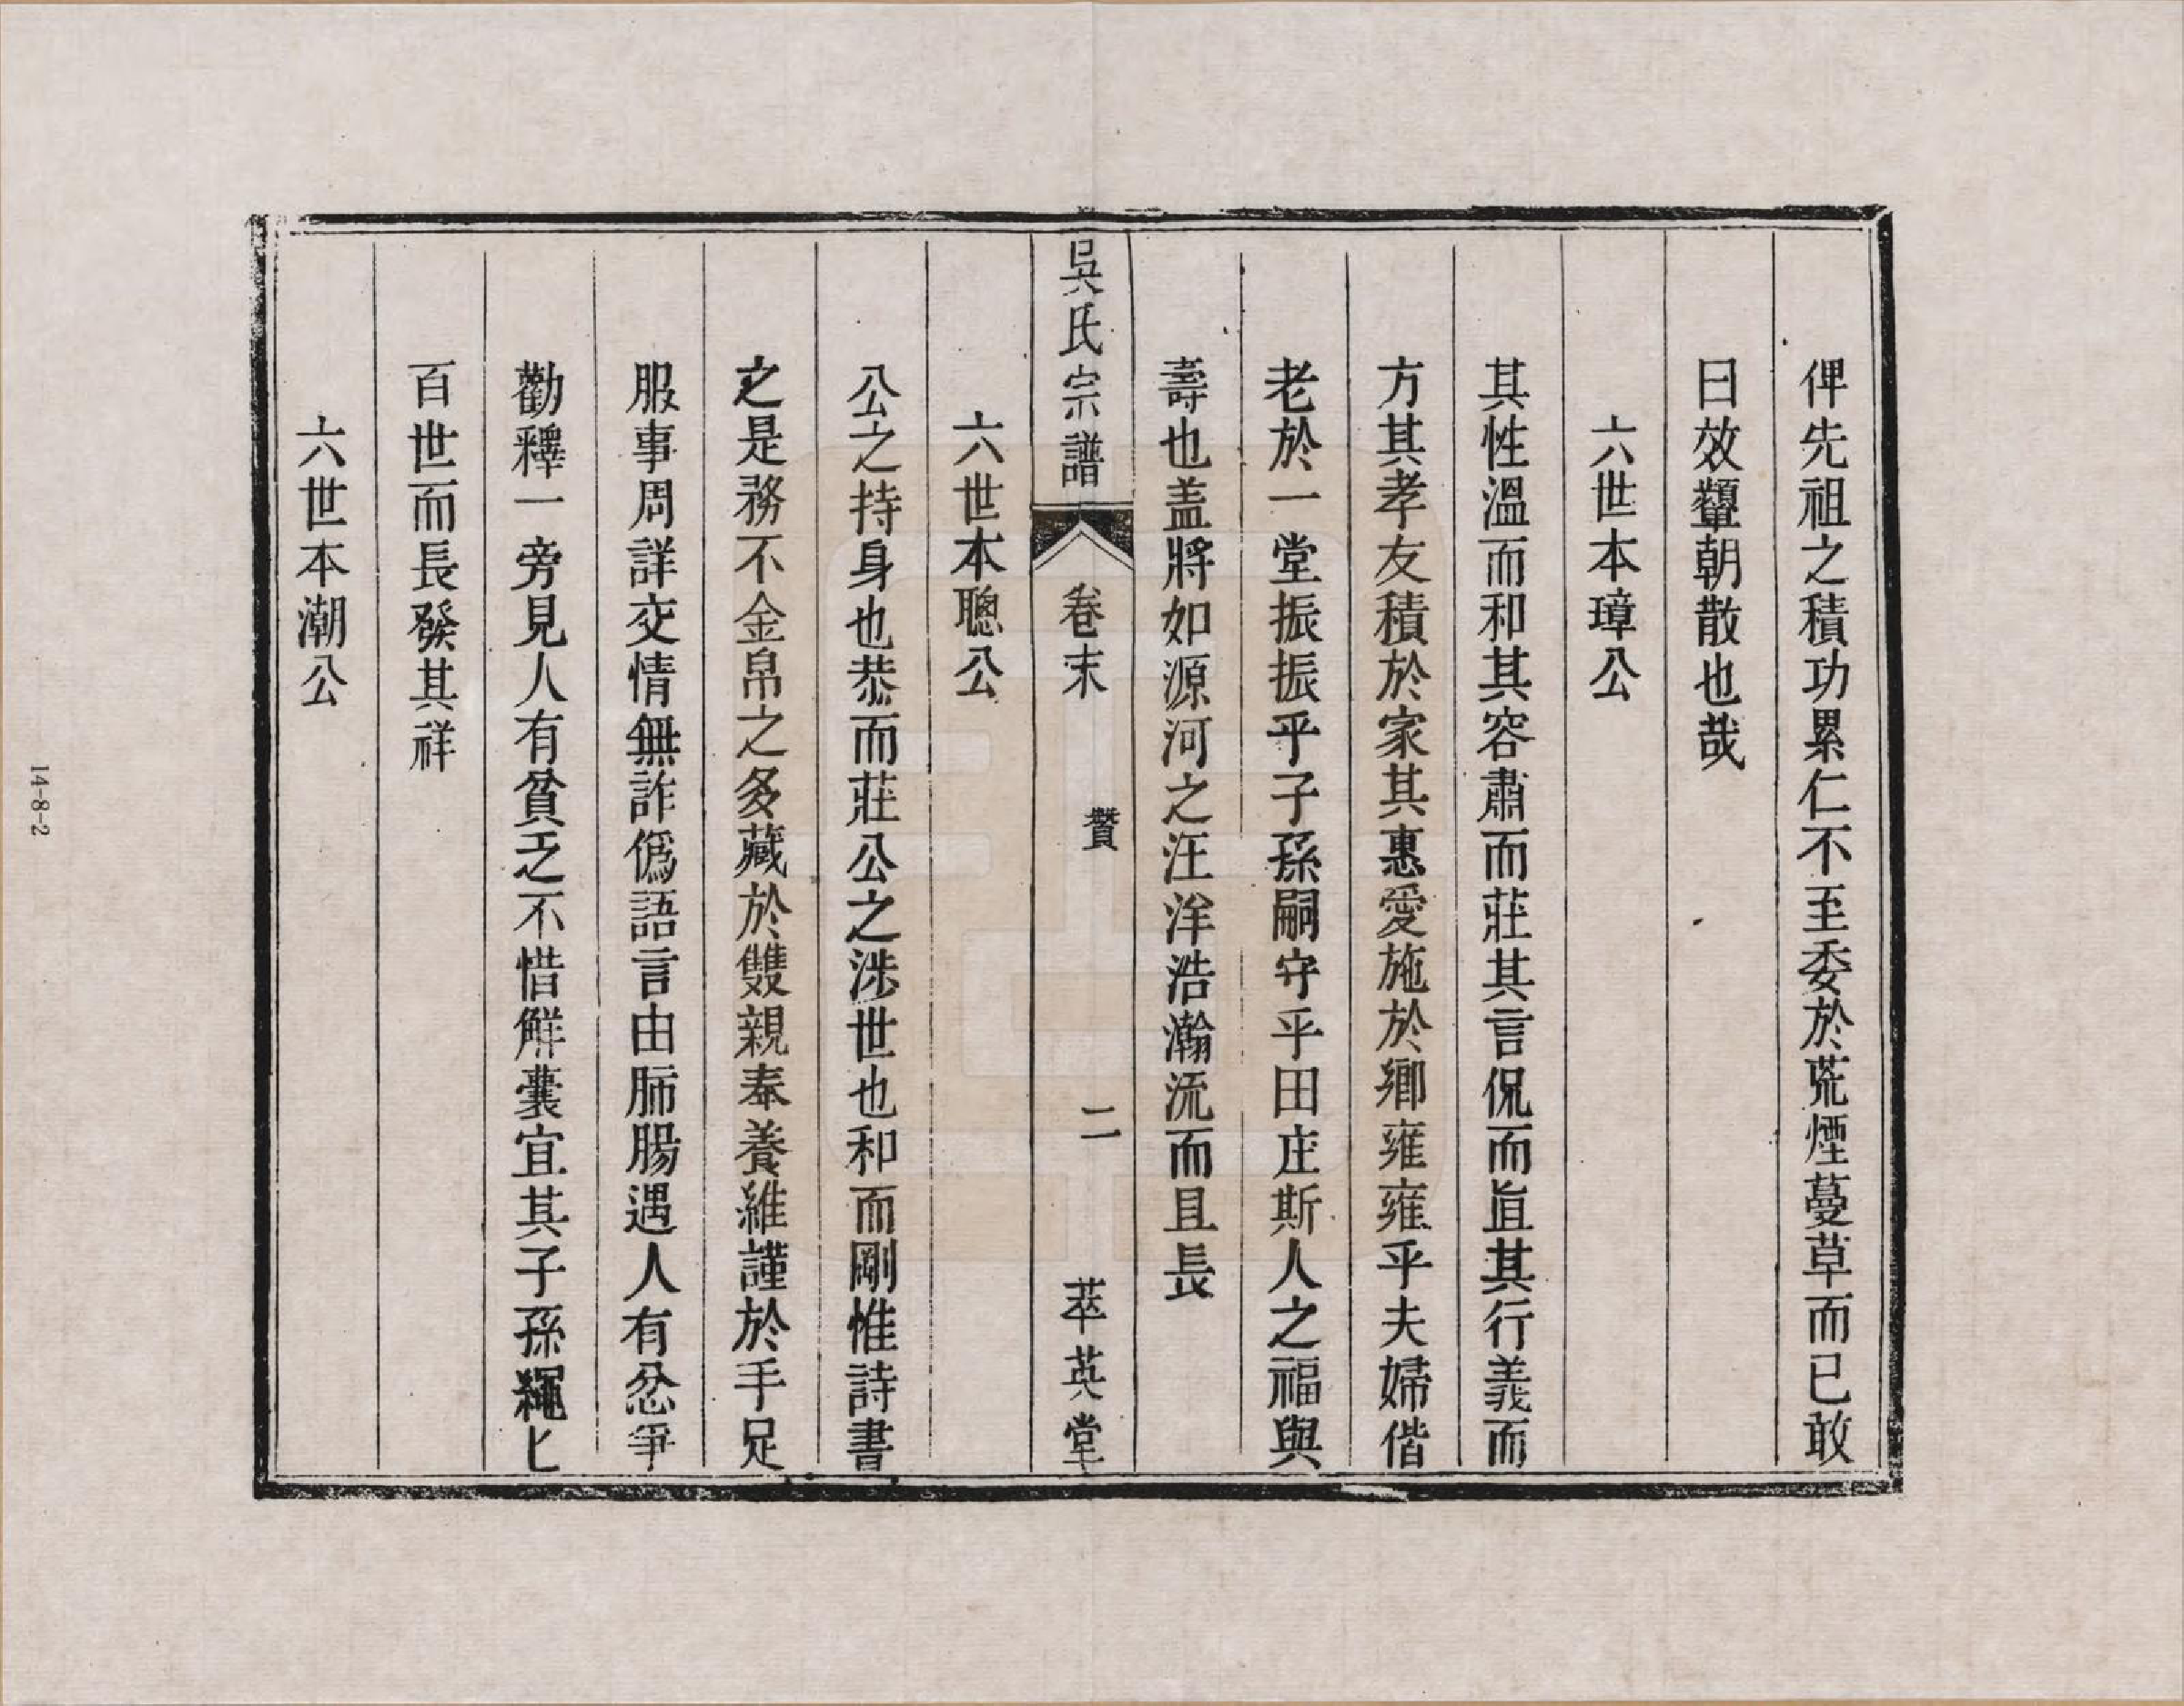 俾先祖之積功累仁不至委於荒煙蔓草而已敢
曰效顰朝散也哉
六世本璋公
其性溫而和其容肅而莊其言侃而直其行義而
方其孝友積於家其惠愛施於鄉雍雍乎夫婦偕
老於一堂振振乎子孫嗣守乎田庄斯人之福與
壽也盖將如源河之汪洋浩瀚流而且長
吳氏宗譜 卷末 贊 二 萃英堂
六世本聰公
公之持身也恭而莊公之涉世也和而剛惟詩書
之是務不金帛之多藏於雙親奉養維謹於手足
服事周詳交情無詐偽語言由肺腸遇人有忿爭
勸釋一旁見人有貧乏不惜解囊宜其子孫繩匕
百世而長發其祥
六世本潮公
14-8-2